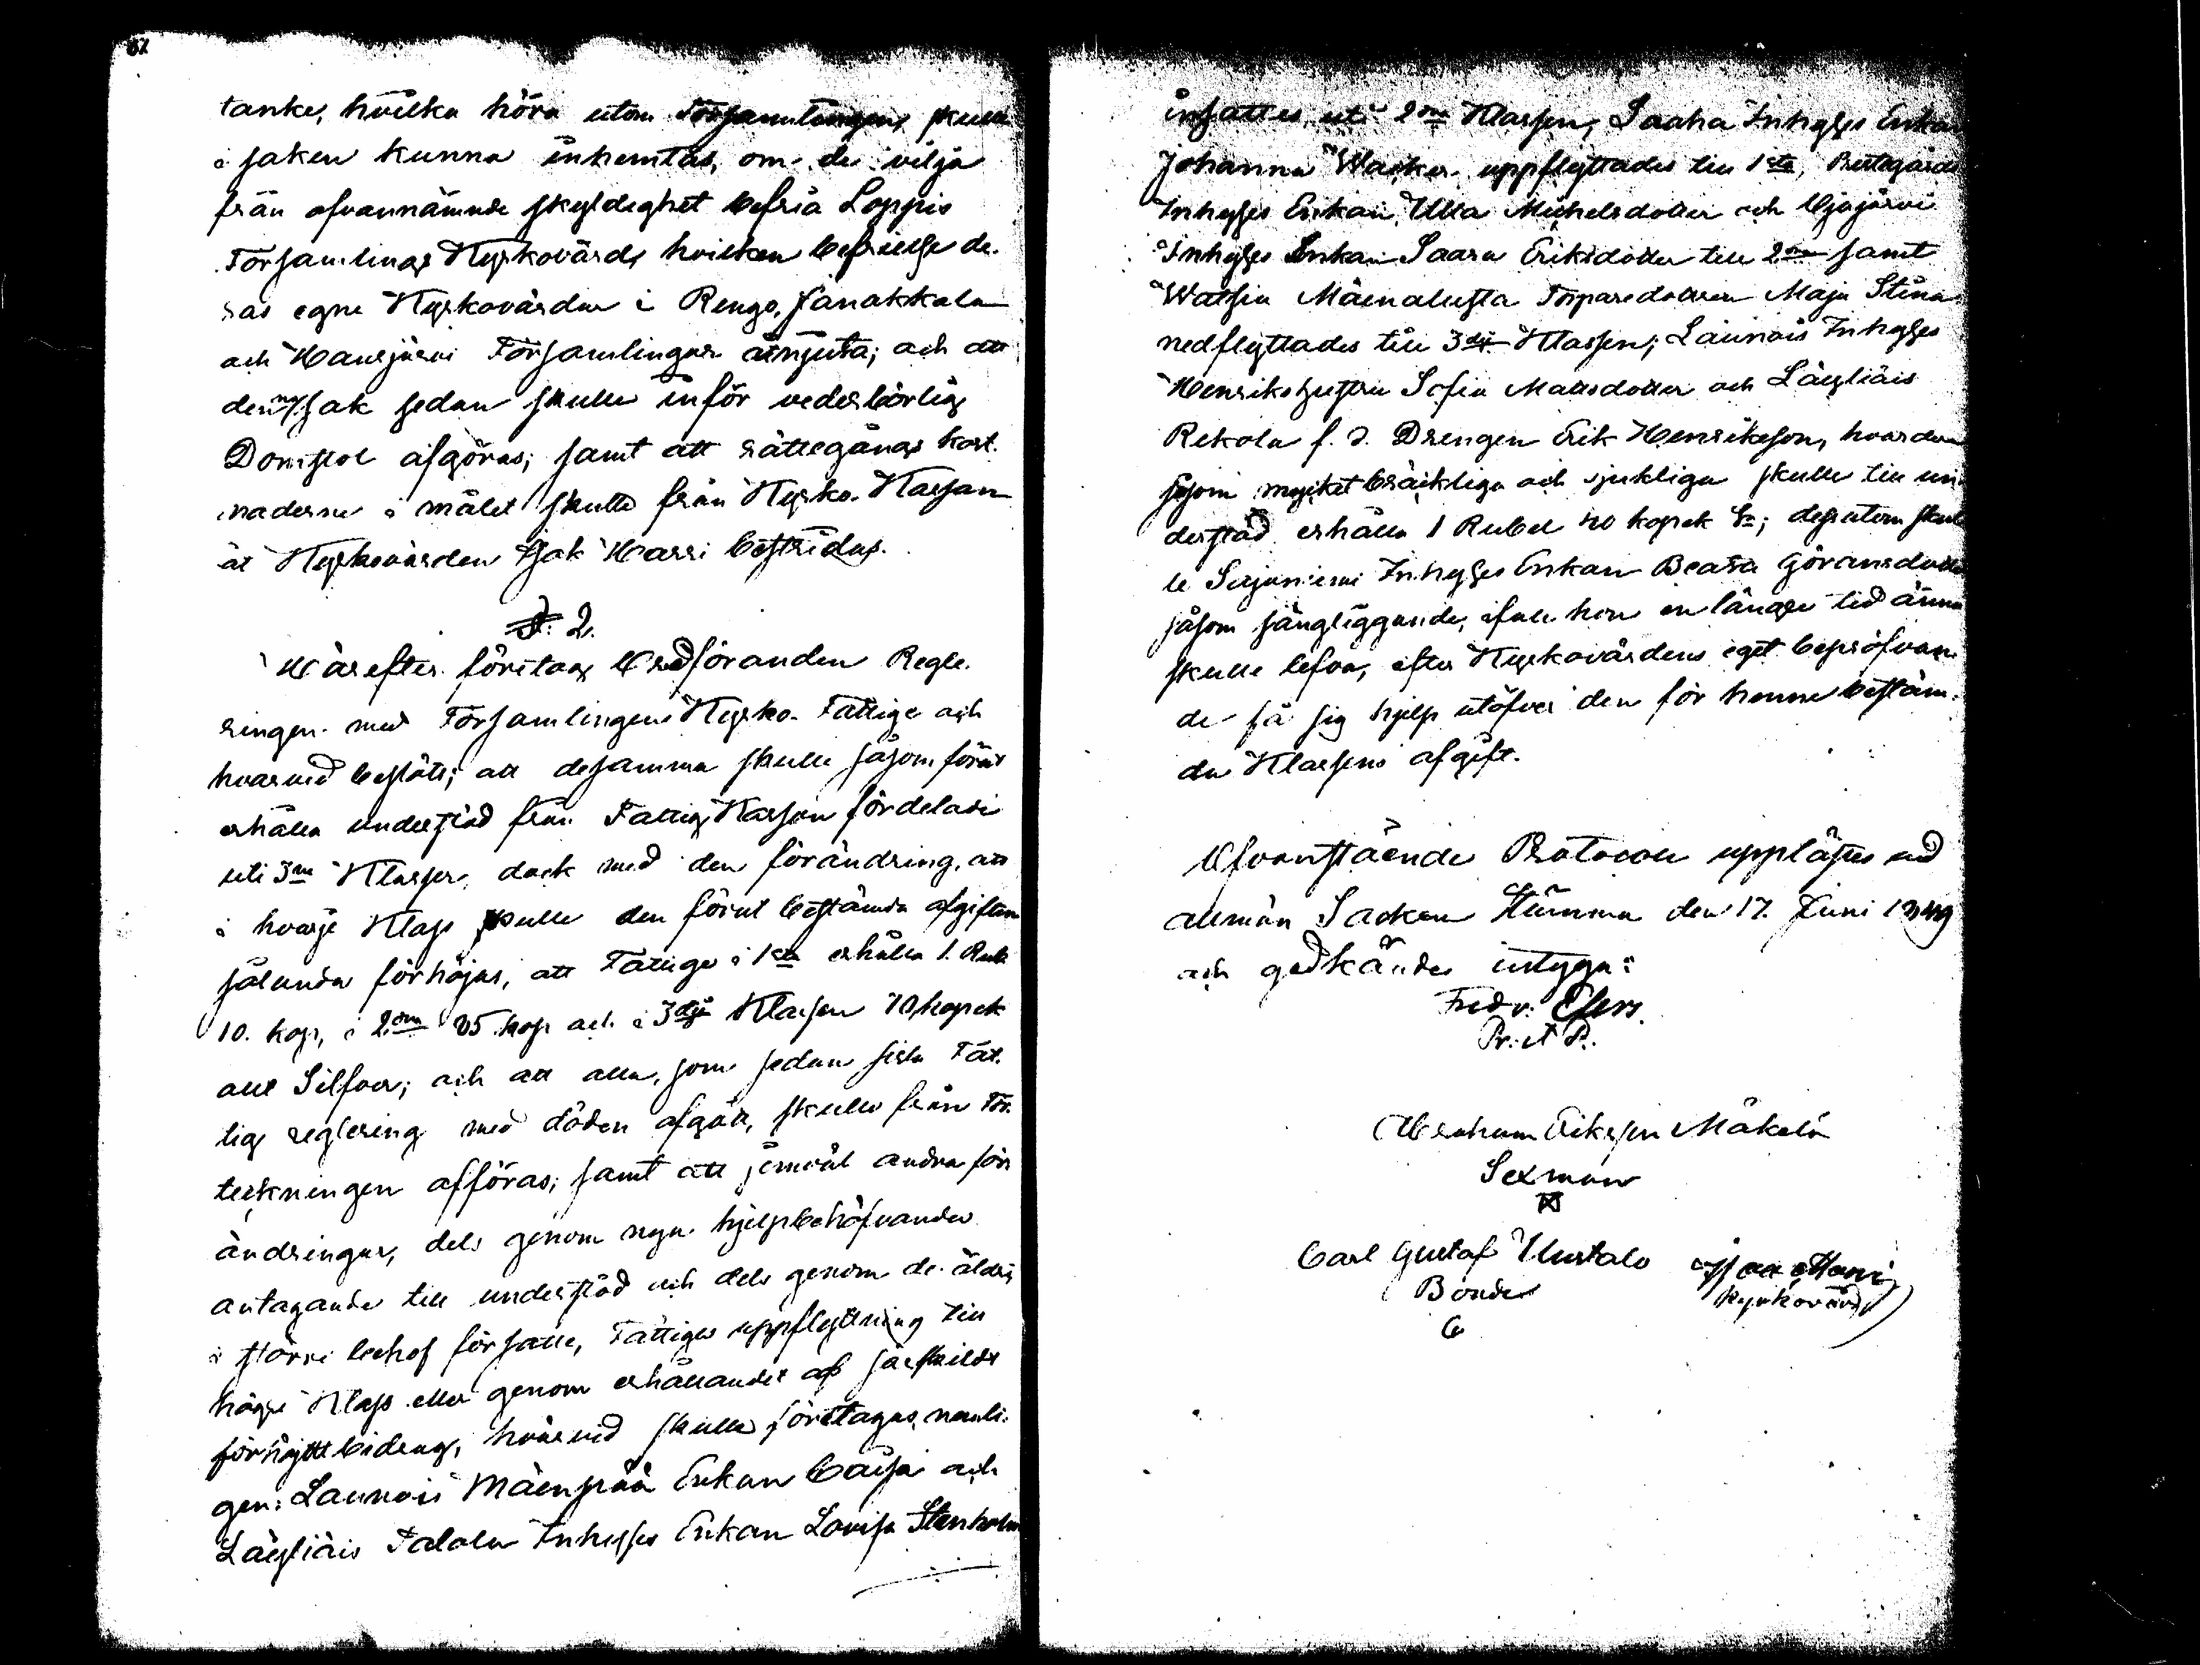 82
tanke, hvilka höra utom Församlingen, skulle
i saken kunna inhemtas, om de vilja
från ofvannämnde skyldighet befria Loppis
Församlings Kyrkovärd, hvilken befrielse de-
ras egne Kyrkovärdar i Rengo, Janakkala
och Hausjärvi Församlingar åtnjuta; och att
denna sak sedan skulle inför vederbörlig
Domstol afgöras; samt att rättegångs kost-
naderne i målet skulle från Kyrko-Kassan
åt Kyrkovärden Isak Harri bestridas.
§. 2.
Härefter företog Ordföranden Regle-
ringen med Församlingens Kyrko-Fattige och
hvarvid beslöts; att desamma skulle såsom förut
erhålla understöd från Fattig Kassan fördelade
uti 3ne Klasser, dock med den förändring, att
i hvarje Klass skulle den förut bestämda afgiften
sålunda förhöjas, att Fattige i 1sta erhålla 1. Rub.
10. kop, i 2dra 85 kop och i 3dje Klassen 70 kopek
allt Silfver; och att alla, som sedan sista Fat-
tig reglering med döden afgått, skulle från För-
teckningen afföras; samt att jemväl andra för-
ändringar, dels genom nya hjelpbehöfvandes
antagande till understöd och dels genom de äldres
i större behof försatte, Fattiges uppflyttning till
högre Klass eller genom erhållandet af särskildt
förhöjdt bidrag, hvarvid skulle företagas, nemli-
gen: Launois Mäenpää Enkan Caisa och
Läyliäis Talola Inhyses Enkan Lovisa Stenholm
insattes uti 2dra Klassen, Inhyses Enkan
Johanna Wacker uppflyttades till 1sta,
Inhyses Enkan Ulla Michelsdotter och Ojajärvi
Inhyses Enkan Saara Eriksdotter till 2dra samt
Watsia Mäenalusta Torparedottern Maja Stina
nedflyttades till 3dje Klassen; Launois Inhyses
Henriks hustru Sofia Mattsdotter och Läyliäis
Rekola f. d. Drengen Erik Henriksson, hvardera
såsom mycket bräckliga och sjukliga skulle till un-
derstöd erhålla 1 Rubel 40 kopek Sr; dessutom skul-
le Sajaniemi Inhyses Enkan Beata Göransdotter
såsom sängliggande, ifall hon en längre tid ännu
skulle lefva, efter Kyrkovärdens eget bepröfvan-
de få sig hjelp utöfver den för henne bestäm-
da Klassens afgift.
Ofvanstående Protocoll upplästes vid
allmän Socken Stämma den 17. Juni 1849
och godkändes intyga:
Fredr. Elers.
Pr. et P.
Abraham Eriksson Mäkelä
Sexman
Carl Gustaf Uusitalo Isaac Harri
Bonde Kyrkovärd